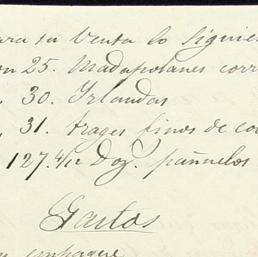 ara su Venta lo Siguie
on 25. Madapolanes corr
" 30. Yrlandas
" 31. trages finos de co
" 127.4/12 Doz. pañuelos
Gastos
empaque